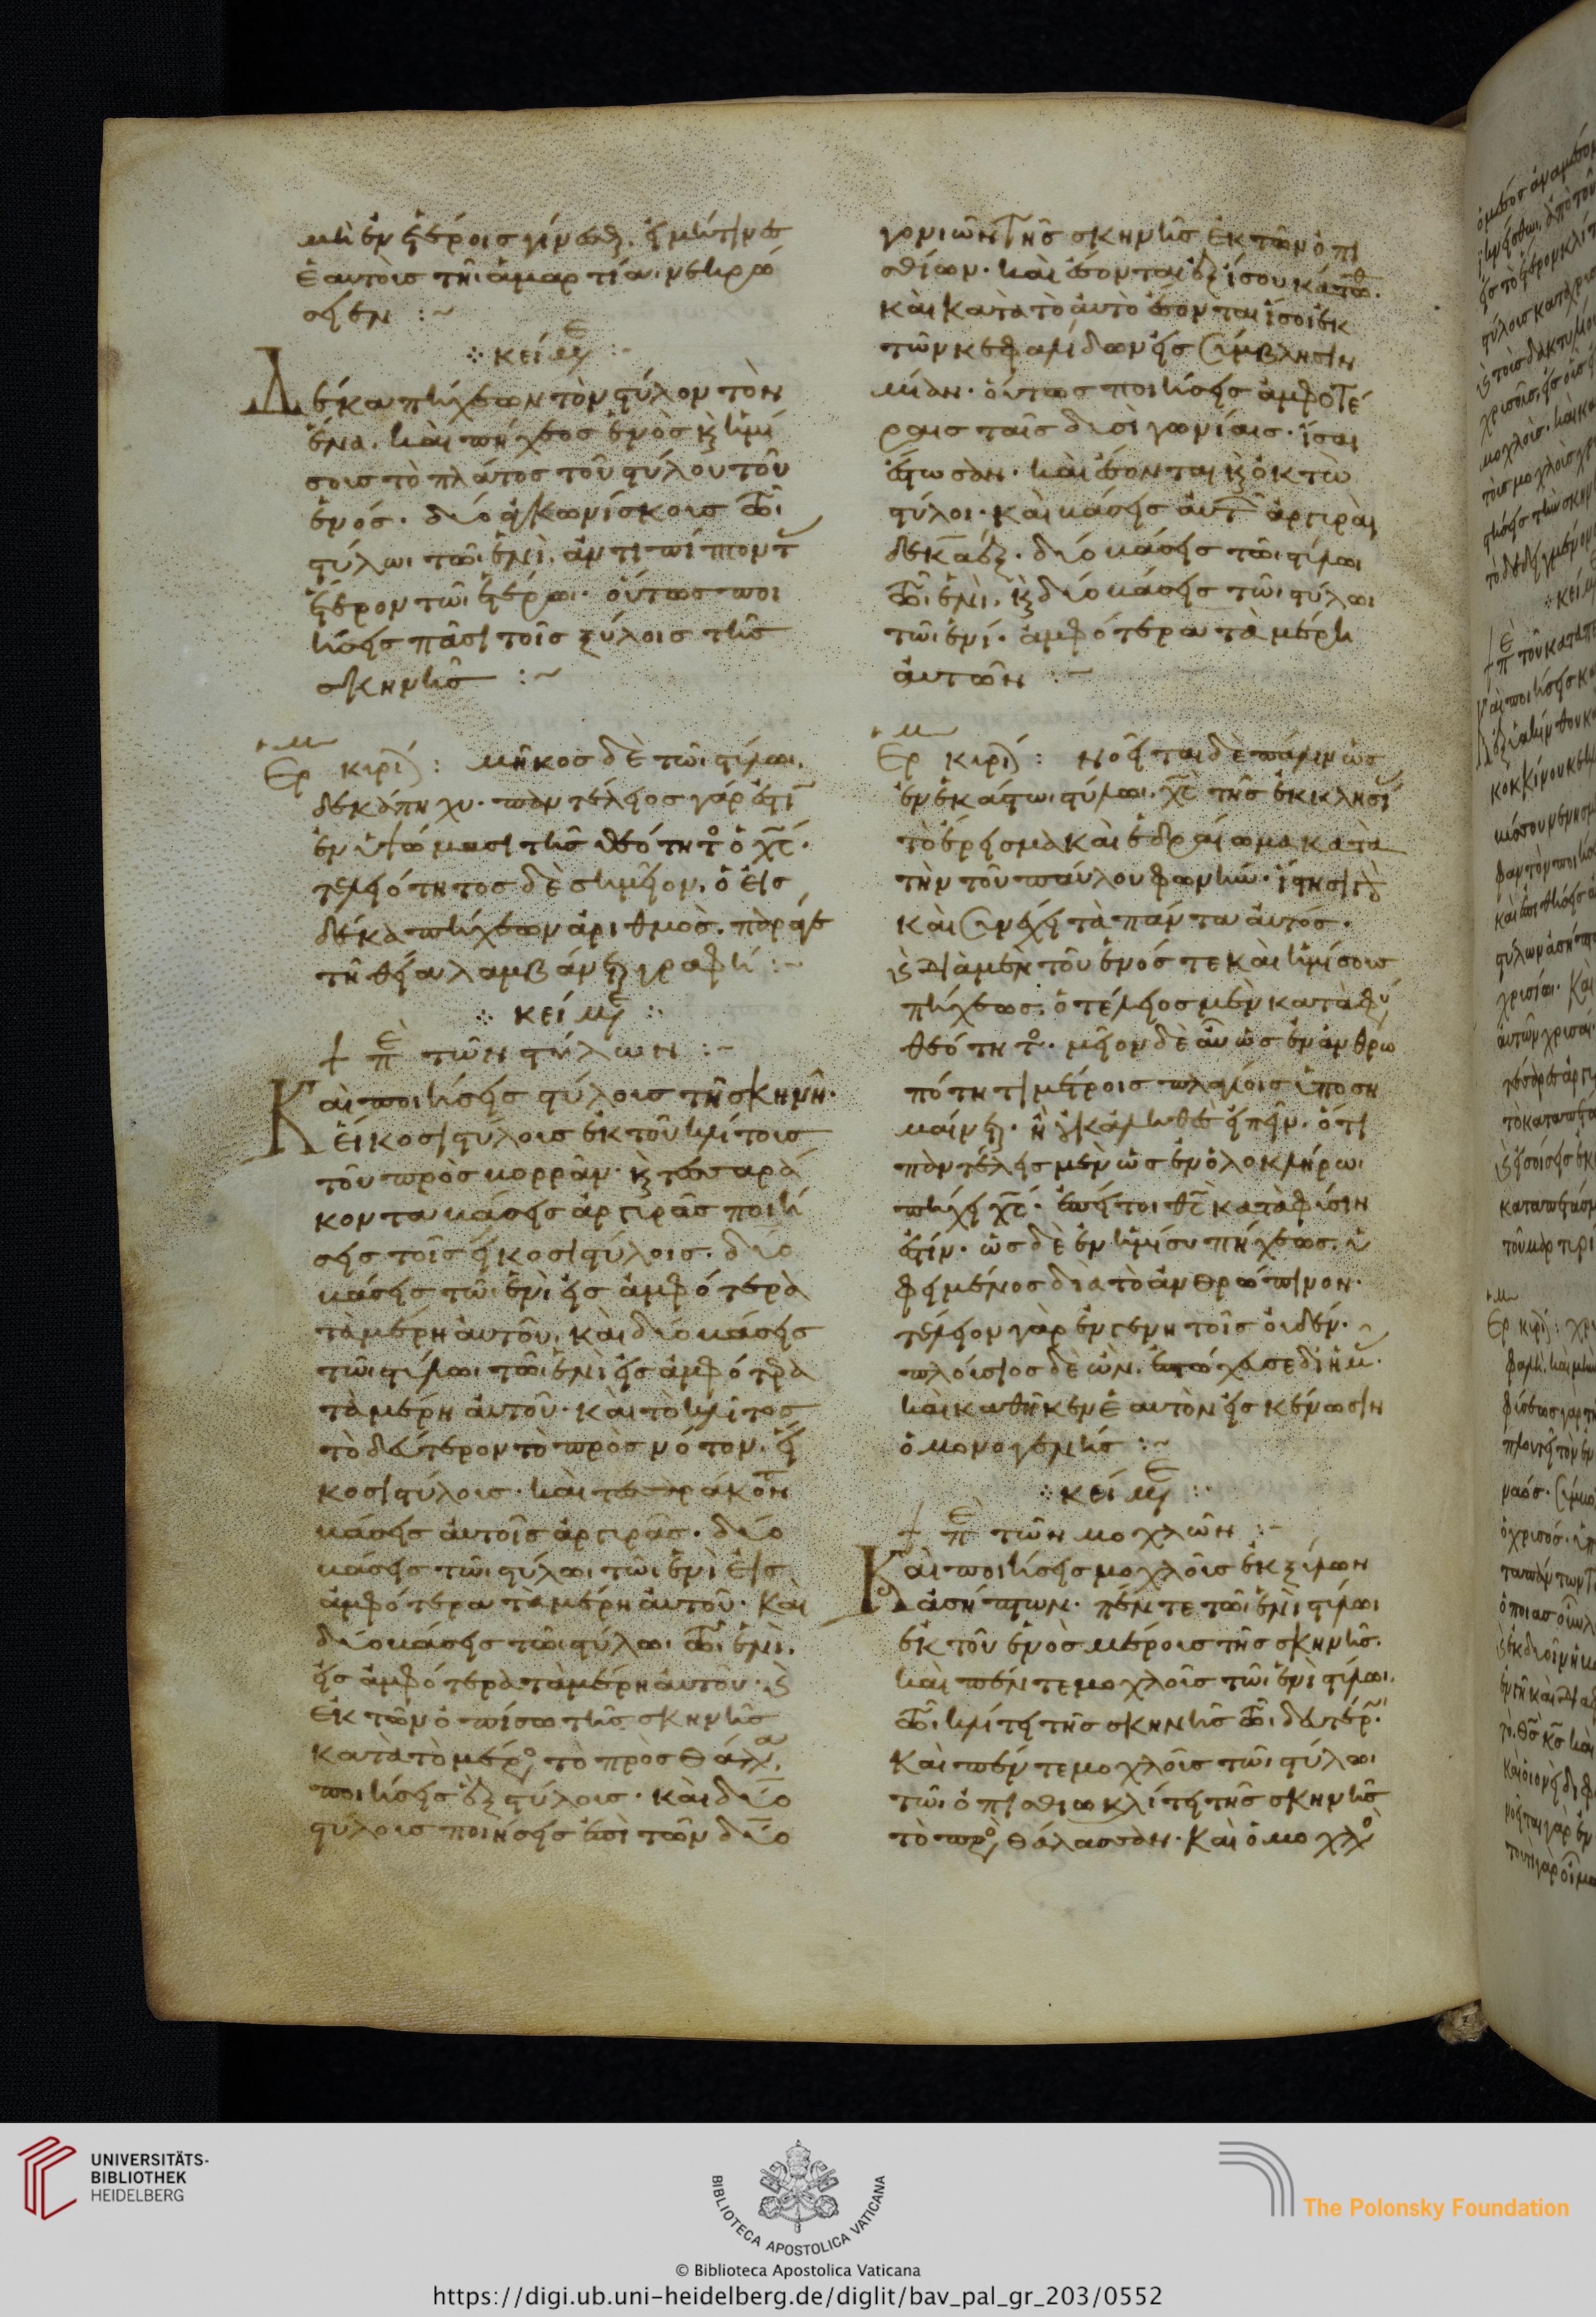 μὴ ἐν ἑτέροις γίνεσθαι, εἰ μήτινες
ἑαυτοὺς τῆι ἁμαρτίαι νεκρώ
σειεν :~
κείμε
Δέκα πήχεων τὸν στύλον τὸν
ἕνα. καὶ πήχεος ἑνὸς κ̀ ἡμί
σους τὸ πλάτος τοῦ στύλου τοῦ
ἑνός. δύο ἀγκωνίσκους τῶι
στύλωι τῶι ἑνὶ, ἀντιπίπτοντ
ἕτερον τῶι ἑτέρωι. οὕτως ποι
ήσεις πᾶσι τοῖς στύλοις τῆς
σκηνῆς :~
Ερμ κυρίλ : μῆκος δὲ τῶι στύλωι,
δεκάπηχυ. παντέλειος γάρ ἐστι
ἐν ὑψώμασι τῆς θεότητο ὁ χς.
τελειότητος δὲ σημεῖον, ὁ εἰς
δέκα πήχεων ἀριθμὸς. παρά γε
τῆ θείαι λαμβάνεται γραφῆ :~
κείμε
+ πε τῶν στύλων :~
Καὶ ποιήσεις στύλους τῆ σκηνῆ.
εἴκοσι στύλους ἐκ τοῦ κλίτους
τοῦ πρὸς βορρᾶν. κ̀ τεσσαρά
κοντα βάσεις ἀργυρᾶς ποιή
σεις τοῖς εἴκοσι στύλοις. δύο
βάσεις τῶι ἑνὶ εἰς ἀμφότερα
τὰ μέρη αὐτοῦ, καὶ δύο βάσεις
τῶι στύλωι τῶι ἑνὶ εἰς ἀμφότρα
τὰ μέρη αὐτοῦ. καὶ τὸ κλίτος
τὸ δεύτερον τὸ πρὸς νότον, εἴ
κοσι στύλους. καὶ τεσσαράκοντ
βάσεις αὐτοῖς ἀργυρᾶς. δύο
βάσεις τῶι στύλωι τῶι ἑνὶ εἰς
ἀμφότερα τὰ μέρη αὐτοῦ. καὶ
δύο βάσεις τῶι στύλωι τῶι ἑνὶ,
εἰς ἀμφότερα τὰ μέρη αὐτοῦ. κ̀
ἐκ τῶν ὀπίσω τῆς σκηνῆς
κατὰ τὸ μέρο τὸ πρὸς θάλα,
ποιήσεις ἓξ στύλους. καὶ δύο
στύλους ποιήσεις ἐπὶ τῶν δύο
γονιῶν τῆς σκηνῆς ἐκ τῶν ὀπι
σθίων. καὶ ἔσονται ἐξ ἴσου κάτωθ.
καὶ κατὰ τὸ αὐτὸ ἔσονται ἴσοι ἐκ
τῶν κεφαλίδων εἰς σύμβλησιν
μίαν. οὕτως ποιήσεις ἀμφοτέ
ραις ταῖς δυσὶ γωνίαις. ἴσαι
ἔστωσαν. καὶ ἔσονται κ̀ ὀκτὼ
στύλοι. καὶ βάσεις αὐτ ἀργυραῖ
δεκαέξ. δύο βάσεις τῶι στύλωι
τῶι ἑνὶ, κ̀ δύο βάσεις τῶι στύλωι
τῶι ἑνί. ἀμφότερα τὰ μέρη
αὐτῶν :~
Ερμ κυρίλ : νοεῖται δὲ πάλιν ὡς
ἐν ἑκάστωι στύλωι, χς τῆς ἐκκλησί
τὸ ἔρεισμα καὶ ἑδραίωμα κατὰ
τὴν τοῦ παύλου φωνήν. ἵστησι γὰρ
καὶ συνέχει τὰ πάντα αὐτός.
κ̀ διὰ μὲν τοῦ ἑνός τε καὶ ἡμίσους
πήχεως, ὁ τέλειος μὲν κατὰ φύ
θεότητο. μεῖον δὲ ἂν ὡς ἐν ἀνθρω
πότητι μέτροις πλαγίοις ὑποση
μαίνεται. ἢ
παντέλης μὲν ὡς ἐν ὁλοκλήρωι
πήχει χς. ἐπείτοι θς κατὰ φύσιν
ἐστίν. ὡς δὲ ἐν ἡμίσυ πήχεως, ὑ
φειμένος διὰ τὸ ἀνθρώπινον.
τέλειον γὰρ ἐν γενητοῖς οὐδέν.
πλούσιος δὲ ὢν, ἐπτώχευσε δι ἡμ.
καὶ καθῆκεν ἑαυτὸν εἰς κένωσιν
ὁ μονογενής :~
κείμε
+ πε τῶν μοχλῶν :~
Καὶ ποιήσεις μοχλοὺς ἐκ ξύλων
ἀσήπτων. πέντε τῶι ἑνὶ στύλωι
ἐκ τοῦ ἑνὸς μέρους τῆς σκηνῆς.
καὶ πέντε μοχλοῖς τῶι ἑνὶ στύλωι,
τῶι κλίτει τῆς σκηνῆς τῶι δευτέρ.
καὶ πέντε μοχλοὺς τῶι στύλωι
τῶι ὀπισθίω κλίτει τῆς σκηνῆς
τὸ πρὸ θάλασσαν. καὶ ὁ μοχλὸ
UNIVERSITÄTS-
BIBLIOTHEK
HEIDELBERG
BIBLIOTECA APOSTOLICA VATICANA
The Polonsky Foundation
© Biblioteca Apostolica Vaticana
https://digi.ub.uni-heidelberg.de/diglit/bav_pal_gr_203/0552